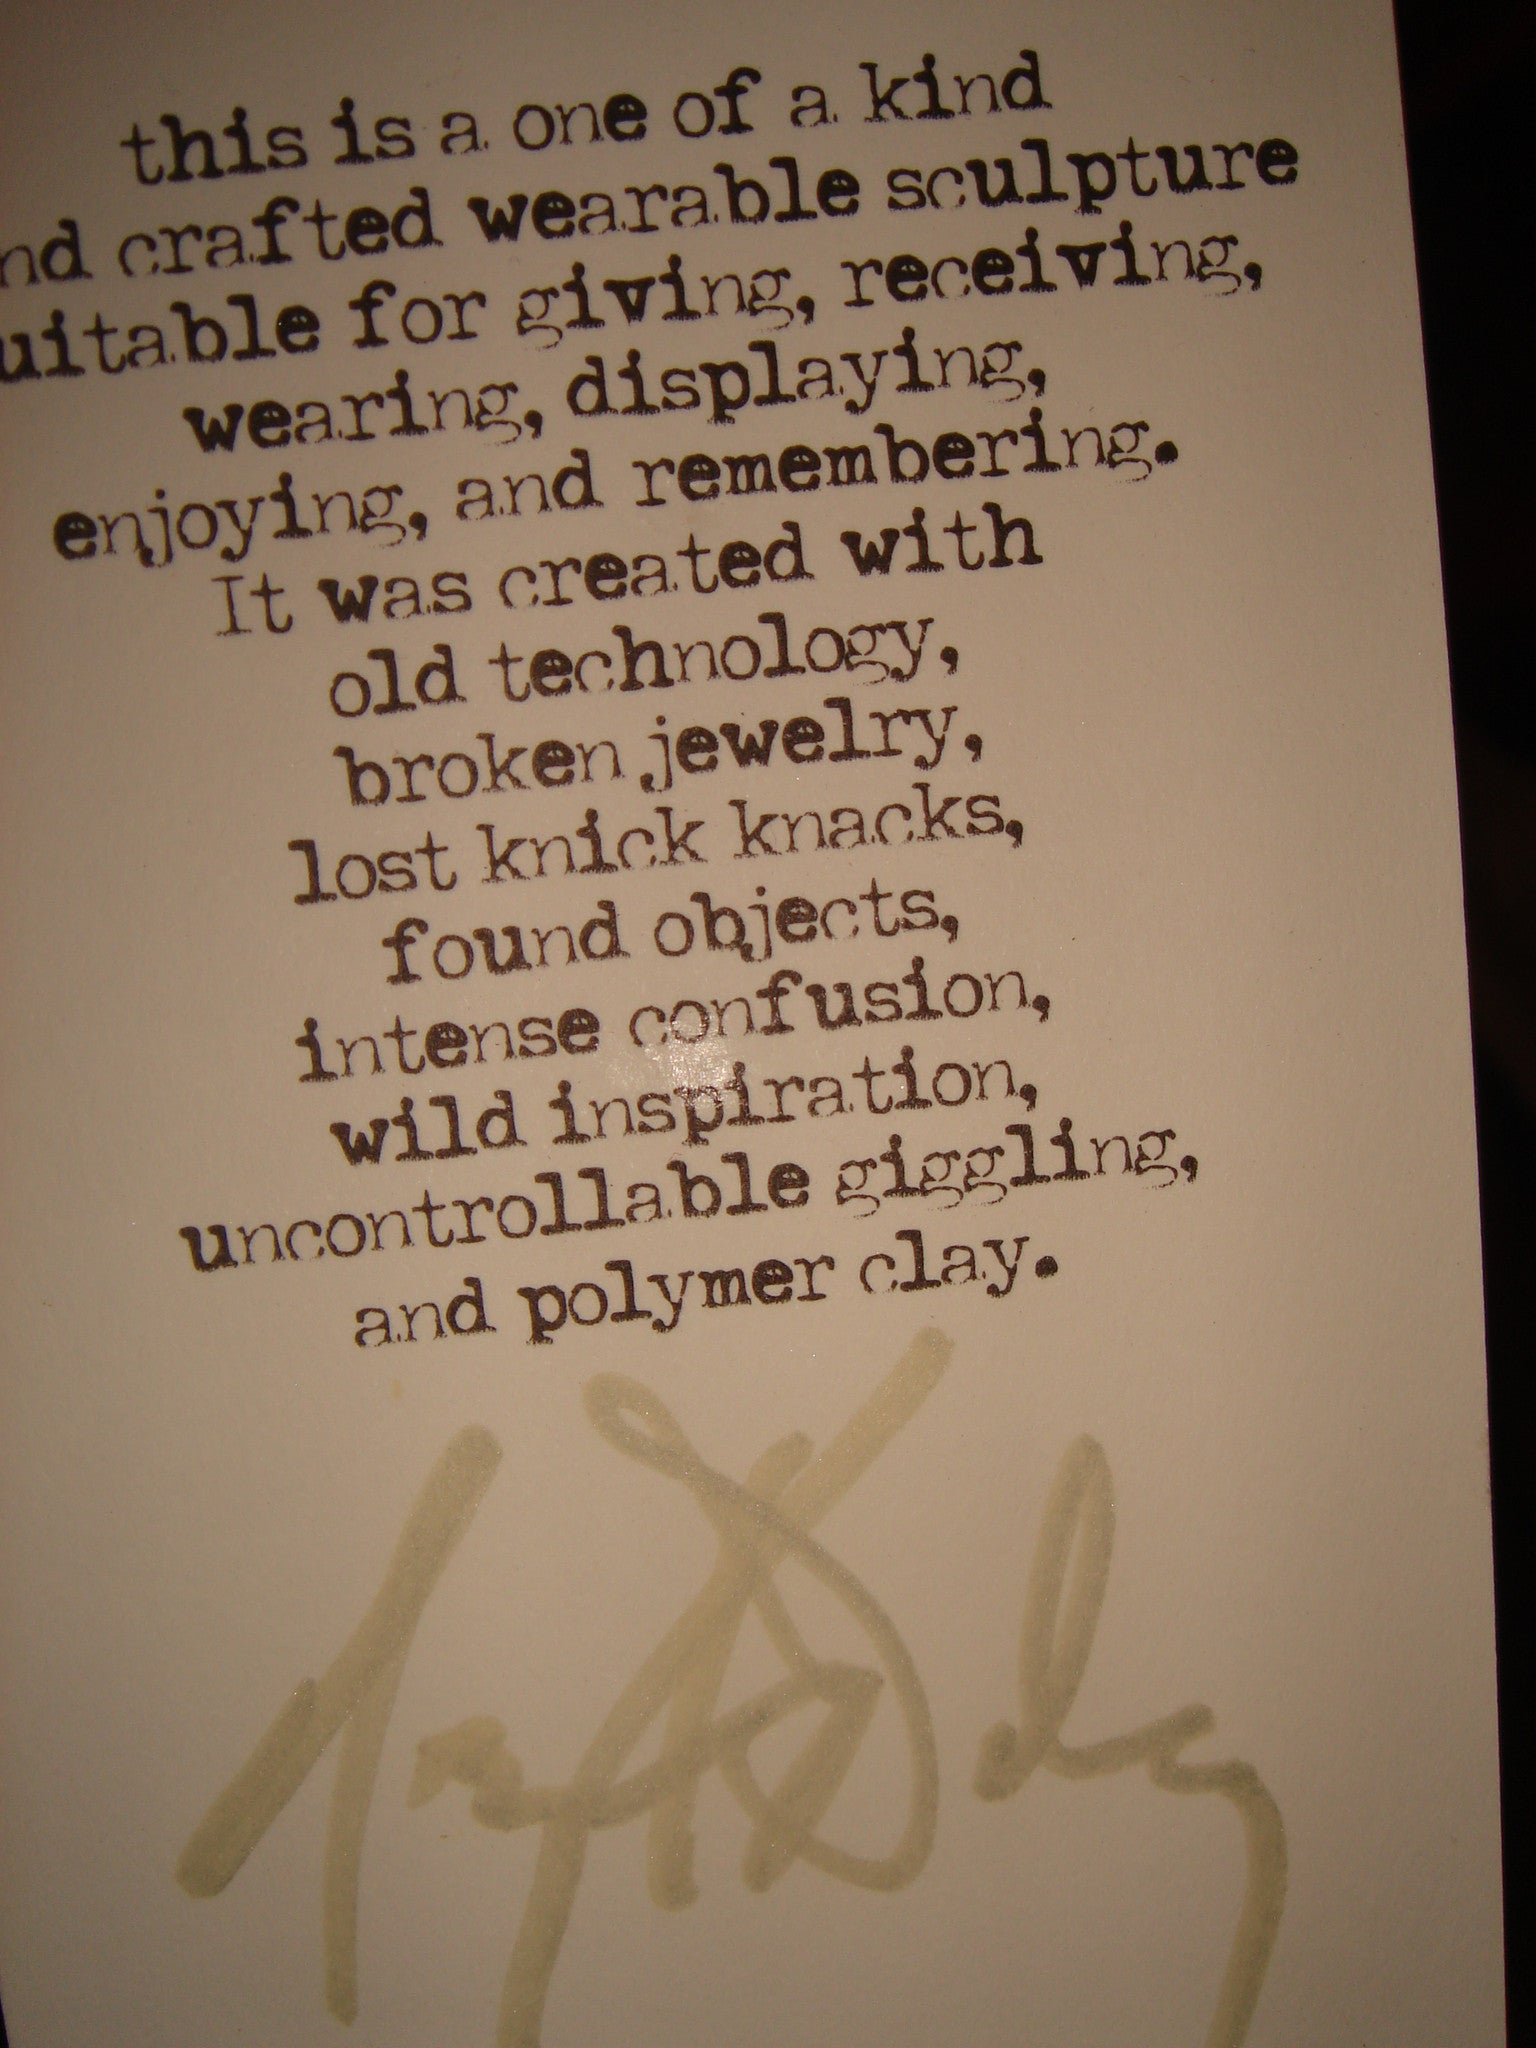 this is a one of a kind
nd crafted wearable sculpture
uitable for giving, receiving,
wearing, displaying,
enjoying, and remembering.
It was created with
old technology,
broken jewelry,
lost knick knacks,
found objects,
intense confusion,
wild inspiration,
uncontrollable giggling,
and polymer clay.